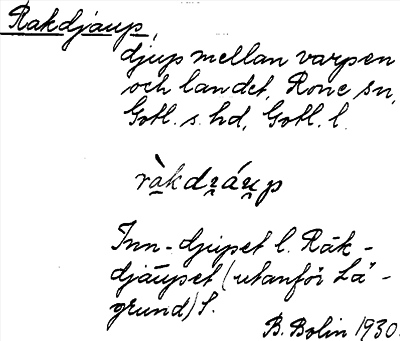 Rakdjaup,
djup mellan varpen
och landet, Rone sn,
Gotl. s. hd, Gotl. l.
ràkdɀáu̯p
Inn-djupet l. Råk-
djäupet (utanför Lä-
grund) S.
B. Bolin 1930.